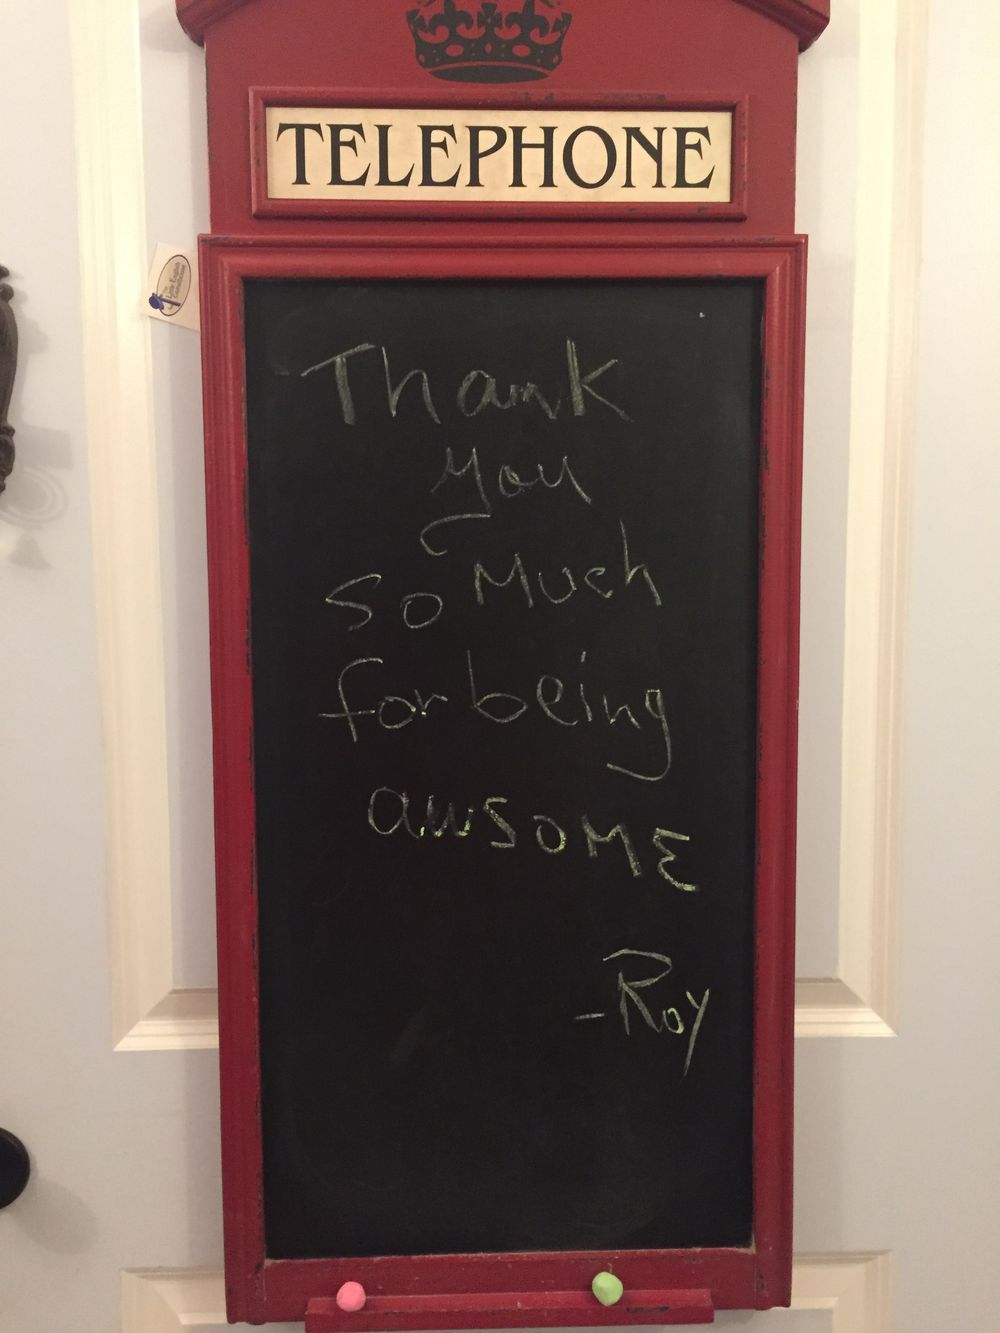 TELEPHONE
Thank
you
so Much
for being
awsoME
-Roy